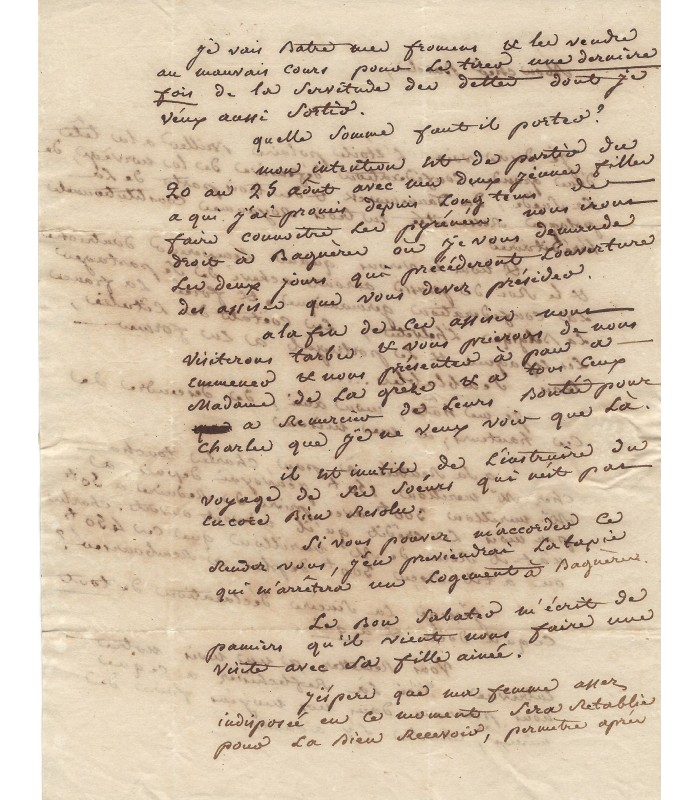 je vais Batre mes fromens & les vendre
au mauvais cours pour Le tirer une dernière
fois de la servitude des dettes dont je
veux aussi sortir.
quelle somme faut il porter?
mon intention est de partir du
20 au 25 aout avec mes deux jeunes filles
a qui j'ai promis depuis Longtems de
faire connoitre Les pÿrénées. nous irons
droit à Bagnères ou je vous demande
Les deux jours qui précéderont L'ouverture
des assises que vous devez présider.
a la fin de ces assises nous
visiterons tarbes & vous prierons de nous
emmener & nous présenter à pau a
Madame de La grèze & a tous ceux
a Remercier de Leurs Bontés pour
Charles que je ne veux voir que Là.
il est inutile de L'instruire du
voyage de ses soeurs qui n'est pas
encore Bien Resolu.
Si vous pouvez m'accorder ce
Rendez vous, j'en previendrai Latapie
qui m'arrêtera un Logement à Bagnères.
Le Bon Sabatier m'écrit de
pamiers qu'il vient nous faire une
visite avec sa fille ainée.
J'espere que ma femme assez
indisposée en ce moment sera Retablie
pour La Bien Recevoir, permettre après